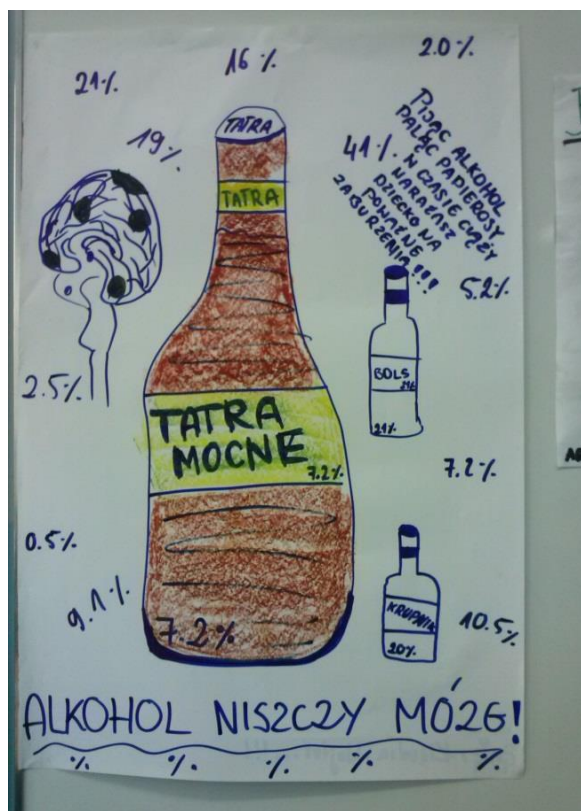 21%
16%
2.0%
19%
TATRA
TATRA
41%
PIJĄC ALKOHOL
PALĄC PAPIEROSY
W CZASIE CIĄŻY
NARAŻASZ
DZIECKO NA
POWAŻNE
ZABURZENIA!!!
5.2%
2.5%
BOLS
21%
21%
TATRA
MOCNE
7.2%
7.2%
0.5%
9.1%
7.2%
KRUPNIK
20%
10.5%
ALKOHOL NISZCZY MÓZG!
% % % % %